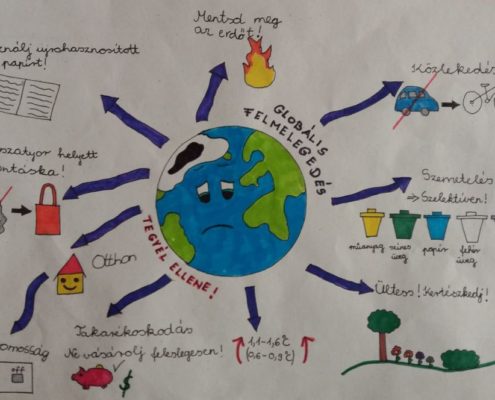 Mentsd meg
az erdőt!
ujrahasznosított
papírt!
GLOBÁLIS
FELMELEGEDÉS
TEGYÉL ELLENE!
Közlekedés
helyett
Szemetelés
⇒ Szelektíven!
műanyag
színes
üveg
papír
fehér
üveg
Otthon
Ültess! Kertészkedj!
Takarékoskodás
Ne vásárolj feleslegesen!
$
1,1-1,6°C
(0,6-0,9°C)
off